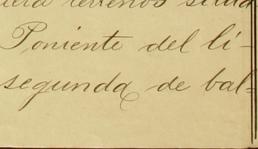 terrenos situa
Poniente del li-
segunda de bal-